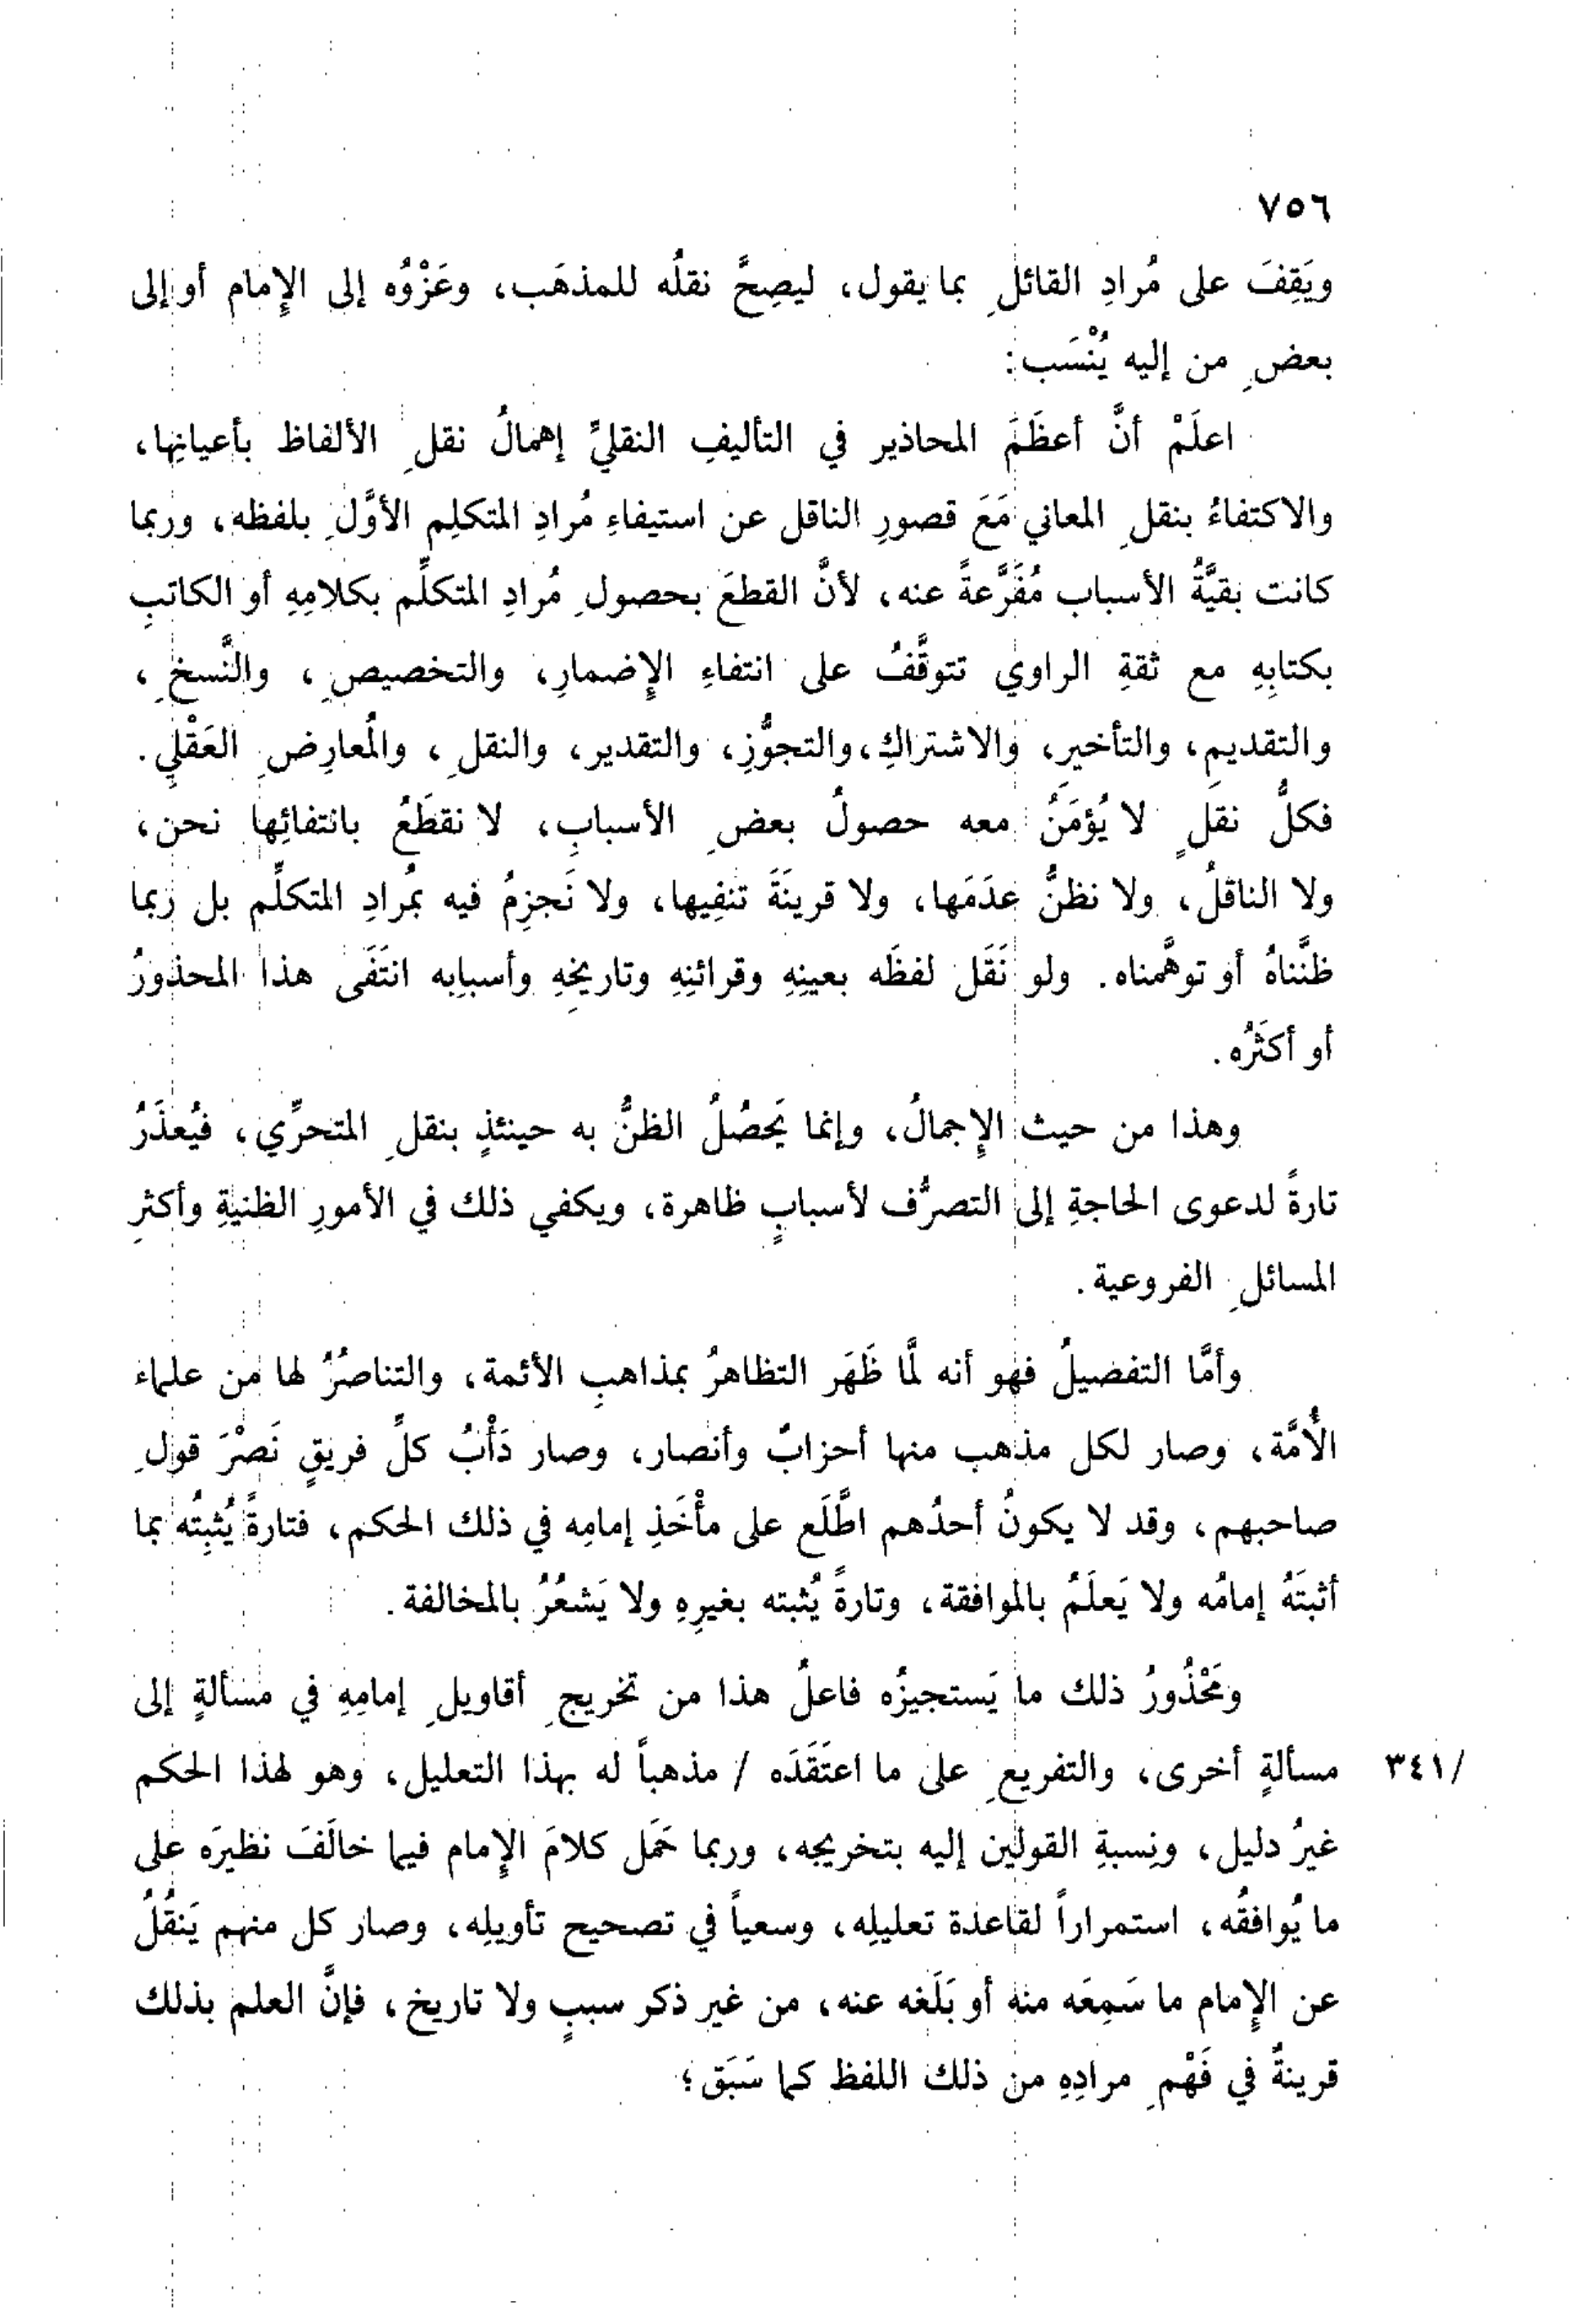 ٧٥٦
ويَقِفَ على مُرادِ القائلِ بما يقول، ليصِحَّ نقلُه للمذهَب، وعَزْوُه إلى الإِمام أو إلى
بعضِ من إليه يُنْسَب:
اعلَمْ أنَّ أعظَمَ المحاذير في التأليفِ النقليِّ إهمالُ نقلِ الألفاظ بأعيانِها،
والاكتفاءُ بنقلِ المعاني مَعَ قصورِ الناقل عن استيفاءِ مُرادِ المتكلِم الأوَّلِ بلفظه، وربما
كانت بقيَّةُ الأسباب مُفَرَّعةً عنه، لأنَّ القطعَ بحصولِ مُرادِ المتكلِّم بكلامِهِ أو الكاتبِ
بكتابِهِ مع ثقةِ الراوي تتوقَّفُ على انتفاءِ الإِضمارِ، والتخصيصِ، والنَّسخِ،
والتقديمِ، والتأخيرِ، والاشتراكِ، والتجوُّزِ، والتقدير، والنقلِ، والمُعارِضِ العَقْلي.
فكلُّ نقلٍ لا يُؤمَنُ معه حصولُ بعضِ الأسبابِ، لا نقطَعُ بانتفائِها نحن،
ولا الناقلُ، ولا نظنُّ عدَمَها، ولا قرينَةَ تنفِيها، ولا نَجزِمُ فيه بمُرادِ المتكلِّم بل ربما
ظنَّناهُ أو توهَّمناه. ولو نَقَل لفظَه بعينِهِ وقرائنِهِ وتاريخِهِ وأسبابِه انتَفَى هذا المحذورُ
أو أكثَرُه.
وهذا من حيث الإِجمالُ، وإنما يَحصُلُ الظنُّ به حينئذٍ بنقلِ المتحرِّي، فيُعذَرُ
تارةً لدعوى الحاجةِ إلى التصرُّف لأسبابٍ ظاهرة، ويكفي ذلك في الأمورِ الظنيةِ وأكثرِ
المسائلِ الفروعية.
وأمَّا التفضيلُ فهو أنه لمَّا ظَهَر التظاهرُ بمذاهبِ الأئمة، والتناصُرُ لها من علماء
الأُمَّة، وصار لكل مذهب منها أحزابٌ وأنصار، وصار دَأْبُ كلِّ فريقٍ نَصْرَ قولِ
صاحبهم، وقد لا يكونُ أحدُهم اطَّلَع على مأْخَذِ إمامِه في ذلك الحكم، فتارةً يُثبِتُه بما
أثبتَهُ إمامُه ولا يَعلَمُ بالموافقة، وتارةً يُثبته بغيرِهِ ولا يَشعُرُ بالمخالفة.
ومَحْذُورُ ذلك ما يَستجيزُه فاعلُ هذا من تخريجِ أقاويلِ إمامِهِ في مسألةٍ إلى
مسألةٍ أخرى، والتفريعِ على ما اعتَقَدَه / مذهباً له بهذا التعليل، وهو لهذا الحكم /٣٤١
غيرُ دليل، ونِسبةِ القولين إليه بتخريجه، وربما حَمَل كلامَ الإِمام فيما خالَفَ نظيرَه على
ما يُوافقُه، استمراراً لقاعدة تعليلِه، وسعياً في تصحيح تأويلِه، وصار كل منهم يَنقُلُ
عن الإِمام ما سَمِعَه منه أو بَلَغه عنه، من غير ذكر سببٍ ولا تاريخ، فإنَّ العلم بذلك
قرينةٌ في فَهْمِ مرادِهِ من ذلك اللفظ كما سَبَق؛